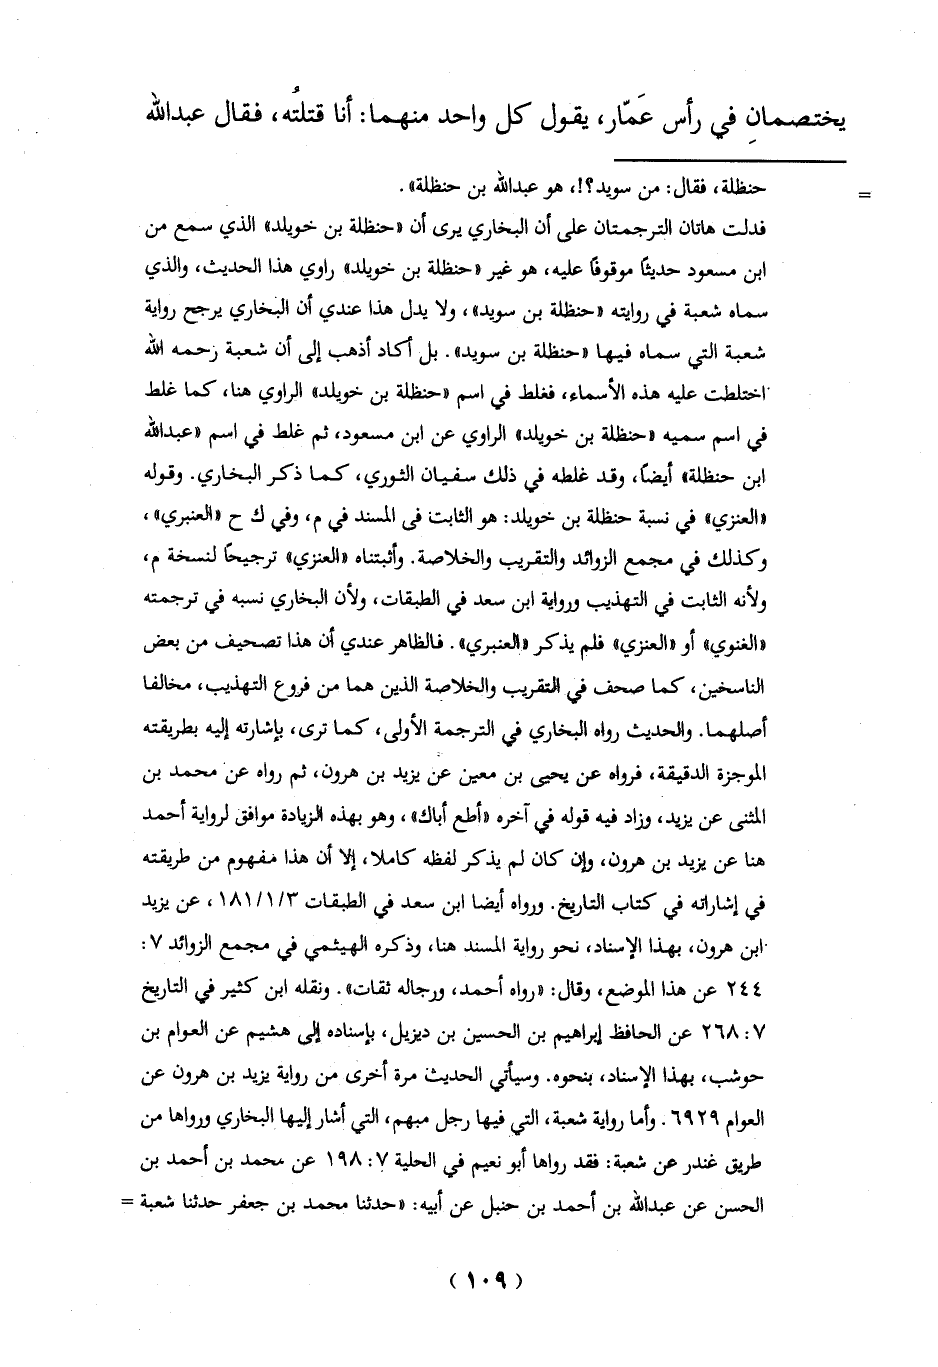 يختصمانِ في رأس عَمّار، يقول كل واحد منهما: أنا قتلتُه، فقال عبدالله
= حنظلة، فقال: من سويد؟!، هو عبدالله بن حنظلة».
فدلت هاتان الترجمتان على أن البخاري يرى أن «حنظلة بن خويلد» الذي سمع من
ابن مسعود حديثًا موقوفًا عليه، هو غير «حنظلة بن خويلد» راوي هذا الحديث، والذي
سماه شعبة في روايته «حنظلة بن سويد»، ولا يدل هذا عندي أن البخاري يرجح رواية
شعبة التي سماه فيها «حنظلة بن سويد». بل أكاد أذهب إلى أن شعبة رحمه الله
اختلطت عليه هذه الأسماء، فغلط في اسم «حنظلة بن خويلد» الراوي هنا، كما غلط
في اسم سميه «حنظلة بن خويلد» الراوي عن ابن مسعود، ثم غلط في اسم «عبدالله
ابن حنظلة» أيضًا، وقد غلطه في ذلك سفيان الثوري، كما ذكر البخاري. وقوله
«العنزي» في نسبة حنظلة بن خويلد: هو الثابت فى المسند في م، وفي ك ح «العنبري»،
وكذلك في مجمع الزوائد والتقريب والخلاصة. وأثبتناه «العنزي» ترجيحًا لنسخة م،
ولأنه الثابت في التهذيب ورواية ابن سعد في الطبقات، ولأن البخاري نسبه في ترجمته
«الغنوي» أو «العنزي» فلم يذكر «العنبري». فالظاهر عندي أن هذا تصحيف من بعض
الناسخين، كما صحف في التقريب والخلاصة الذين هما من فروع التهذيب، مخالفا
أصلهما. والحديث رواه البخاري في الترجمة الأولى، كما ترى، بإشارته إليه بطريقته
الموجزة الدقيقة، فرواه عن يحيى بن معين عن يزيد بن هرون، ثم رواه عن محمد بن
المثنى عن يزيد، وزاد فيه قوله في آخره «أطع أباك»، وهو بهذه الزيادة موافق لرواية أحمد
هنا عن يزيد بن هرون، وإن كان لم يذكر لفظه كاملا، إلا أن هذا مفهوم من طريقته
في إشاراته في كتاب التاريخ. ورواه أيضا ابن سعد في الطبقات ١٨١/١/٣، عن يزيد
ابن هرون، بهذا الإسناد، نحو رواية المسند هنا، وذكره الهيثمي في مجمع الزوائد ٧:
٢٤٤ عن هذا الموضع، وقال: «رواه أحمد، ورجاله ثقات». ونقله ابن كثير في التاريخ
٧: ٢٦٨ عن الحافظ إبراهيم بن الحسين بن ديزيل، بإسناده إلى هشيم عن العوام بن
حوشب، بهذا الإسناد، بنحوه. وسيأتي الحديث مرة أخرى من رواية يزيد بن هرون عن
العوام ٦٩٢٩. وأما رواية شعبة، التي فيها رجل مبهم، التي أشار إليها البخاري ورواها من
طريق غندر عن شعبة: فقد رواها أبو نعيم في الحلية ٧: ١٩٨ عن محمد بن أحمد بن
الحسن عن عبدالله بن أحمد بن حنبل عن أبيه: «حدثنا محمد بن جعفر حدثنا شعبة =
(١٠٩)